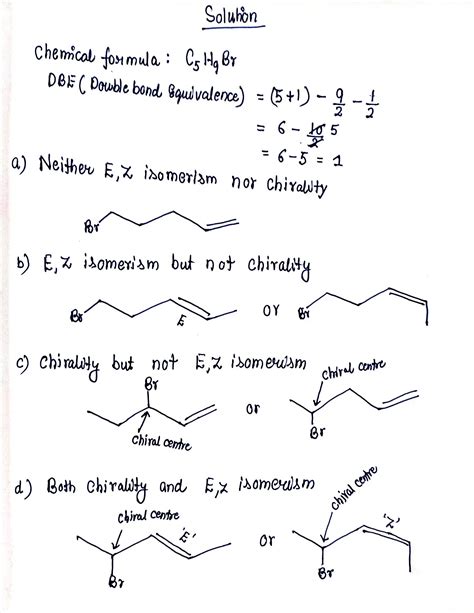 Solution
Chemical formula : C5H9Br
DBE (Double bond Equivalence) = (5+1) - 9/2 - 1/2
= 6 - 5
= 6-5 = 1
a) Neither E,Z isomerism nor chirality
Br
b) E,Z isomerism but not chirality
Br E or Br
c) Chirality but not E,Z isomerism
Br or chiral centre
chiral centre Br
d) Both chirality and E,Z isomerism
chiral centre 'E' or chiral centre 'Z'
Br Br